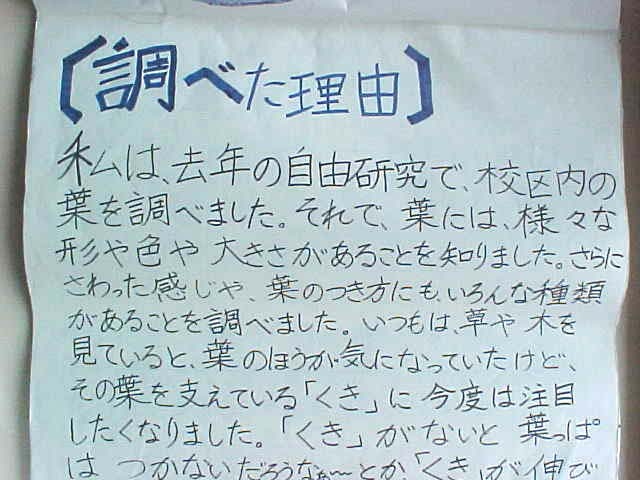 【調べた理由】
私は、去年の自由研究で、校区内の
葉を調べました。それで、葉には、様々な
形や色や大きさがあることを知りました。さらに
さわった感じや、葉のつき方にも、いろんな種類
があることを調べました。いつもは、草や木を
見ていると、葉のほうが気になっていたけど、
その葉を支えている「くき」に今度は注目
したくなりました。「くき」がないと葉っぱ
は つかないだろうなぁ〜とか、「くき」が伸び